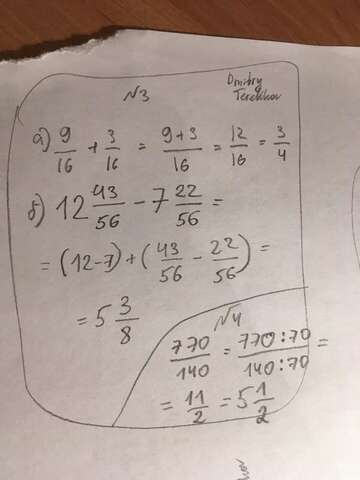 №3
Dmitry
Terekhov
а) 9/16 + 3/16 = 9+3/16 = 12/16 = 3/4
б) 12 43/56 - 7 22/56 =
= (12-7) + (43/56 - 22/56) =
= 5 3/8
№4
770/140 = 770:70/140:70 =
= 11/2 = 5 1/2